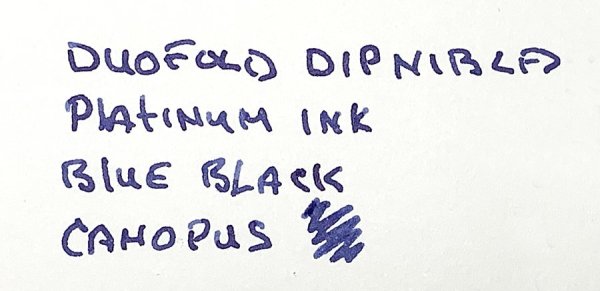 DUOFOLD DIPNIBLED
PLATINUM INK
BLUE BLACK
CANOPUS